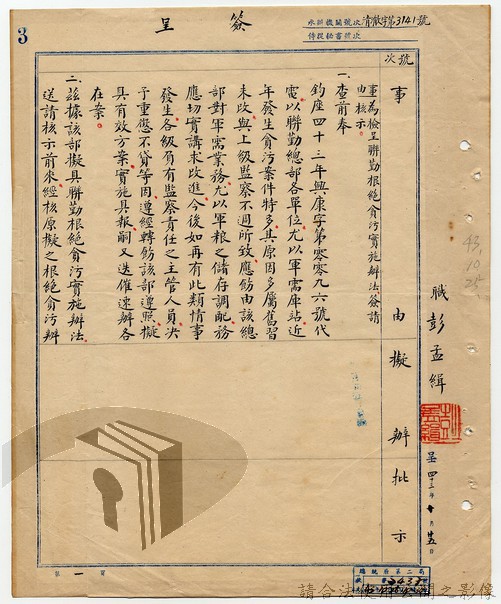 簽呈
承辦機關號次 清澈字第3141號
侍從秘書號次
3
號次
事由擬辦批示
事為檢呈聯勤根絕貪污實施辦法簽請
由核示。
一、查前奉
鈞座四十三年興康字第零零九六號代
電以聯勤總部各單位尤以軍需庫站近
年發生貪污案件特多其原因多屬舊習
未改與上級監察不週所致應飭由該總
部對軍需業務尤以軍粮之儲存調配務
應切實講求改進今後如再有此類情事
發生各級負有監察責任之主管人員决
予重懲不貸等因遵經轉飭該部遵照擬
具有效方案實施具報嗣又迭催速辦各
在案。
二、茲據該部擬具聯勤根絕貪污實施辦法
送請核示前來經核原擬之根絕貪污辦
職彭孟緝
呈 四十三年十月廿五日
43.10.25
第一頁
總統府第二局
請合法使用公開之影像